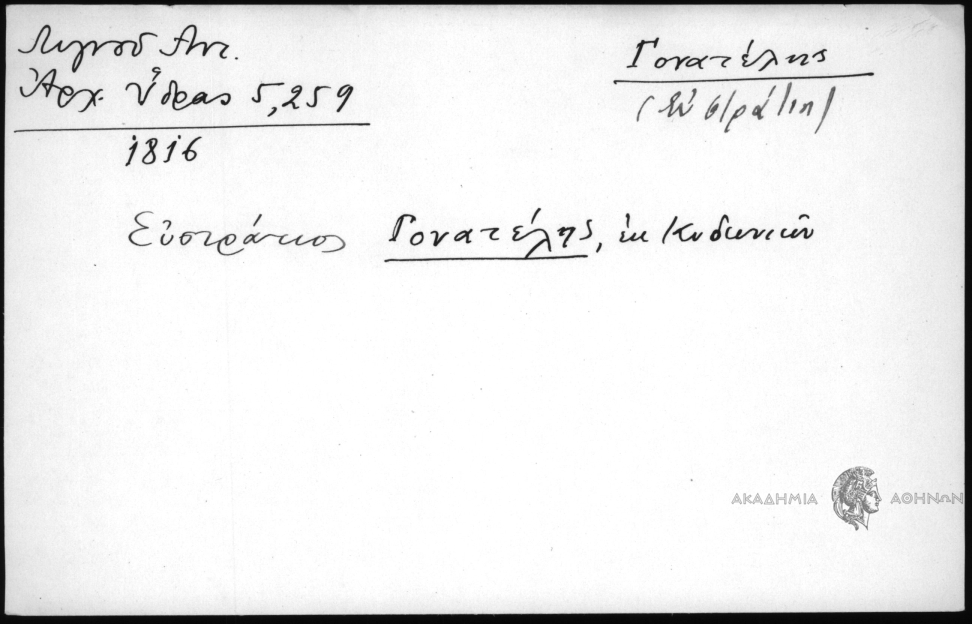 Λιγνοῦ Ἀντ.
Ἀρχ. Ὕδρας 5,259
1816
Γονατέλης
(Εὐστράτιη)
Εὐστράτιος Γονατέλης, ἐκ Κυδωνιῶν
ΑΚΑΔΗΜΙΑ ΑΘΗΝΩΝ